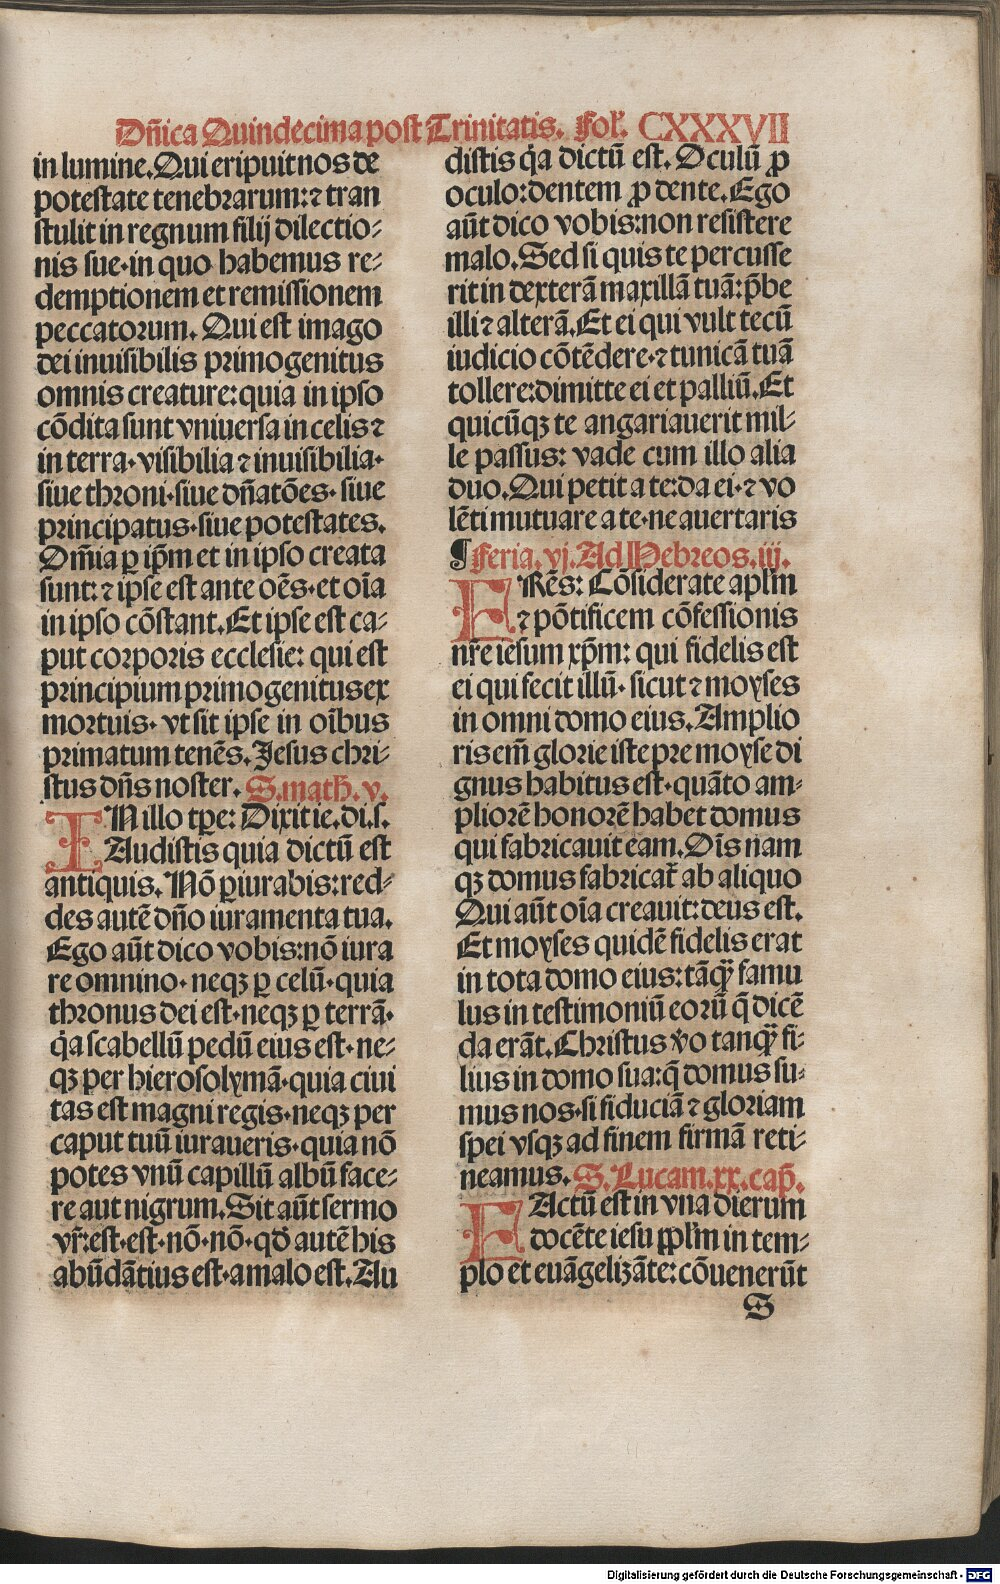 Dñica Quindecima post Trinitatis. Fol̃. CXXXVII
in lumine. Qui eripuit nos de
potestate tenebrarum: ⁊ tran
stulit in regnum filij dilectio⸗
nis sue · in quo habemus re⸗
demptionem et remissionem
peccatorum. Qui est imago
dei inuisibilis primogenitus
omnis creature: quia in ipso
cõdita sunt vniuersa in celis ⁊
in terra · visibilia ⁊ inuisibilia ·
siue throni · siue dñatões · siue
principatus · siue potestates.
Om̃ia ꝑ ip̃m et in ipso creata
sunt: ⁊ ipse est ante oẽs · et oĩa
in ipso cõstant. Et ipse est ca⸗
put corporis ecclesie: qui est
principium primogenitus ex
mortuis · vt sit ipse in oĩbus
primatum tenẽs. Jesus chri⸗
stus dñs noster. S. math̃. v.
IN illo tꝑe: Dixit ie. di. s.
Audistis quia dictũ est
antiquis. Nõ ꝑiurabis: red⸗
des autẽ dño iuramenta tua.
Ego aũt dico vobis: nõ iura
re omnino · neqꝫ ꝑ celũ · quia
thronus dei est · neqꝫ ꝑ terrã ·
q̇a scabellũ pedũ eius est · ne⸗
qꝫ per hierosolymã · quia ciui
tas est magni regis · neqꝫ per
caput tuũ iuraueris · quia nõ
potes vnũ capillũ albũ face⸗
re aut nigrum. Sit aũt sermo
vr̃: est · est · nõ · nõ · qđ autẽ his
abũdãtius est · a malo est. Au
distis q̇a dictũ est. Oculũ ꝓ
oculo: dentem ꝓ dente. Ego
aũt dico vobis: non resistere
malo. Sed si quis te percusse
rit in dexterã maxillã tuã: p̃be
illi ⁊ alterã. Et ei qui vult tecũ
iudicio cõtẽdere · ⁊ tunicã tuã
tollere: dimitte ei et palliũ. Et
quicũqꝫ te angariauerit mil⸗
le passus: vade cum illo alia
duo. Qui petit a te: da ei · ⁊ vo
lẽti mutuare a te · ne auertaris
¶ Feria. vj. Ad Hebreos. iij.
FRẽs: Cõsiderate apl̃m
⁊ põtificem cõfessionis
nr̃e iesum xp̃m: qui fidelis est
ei qui fecit illũ · sicut ⁊ moyses
in omni domo eius. Amplio
ris em̃ glorie iste pre moyse di
gnus habitus est · quãto am⸗
pliorẽ honorẽ habet domus
qui fabricauit eam. Oĩs nam
qꝫ domus fabricat̃ ab aliquo
Qui aũt oĩa creauit: deus est.
Et moyses quidẽ fidelis erat
in tota domo eius: tãqꝫ̃ famu
lus in testimoniũ eorũ q̃ dicẽ
da erãt. Christus v̊o tanqꝫ̃ fi⸗
lius in domo sua: q̃ domus su⸗
mus nos · si fiduciã ⁊ gloriam
spei vsqꝫ ad finem firmã reti⸗
neamus. S. Lucam. xx. cap̃.
FActũ est in vna dierum
docẽte iesu ppl̃m in tem⸗
plo et euãgelizãte: cõuenerũt
S
Digitalisierung gefördert durch die Deutsche Forschungsgemeinschaft - DFG